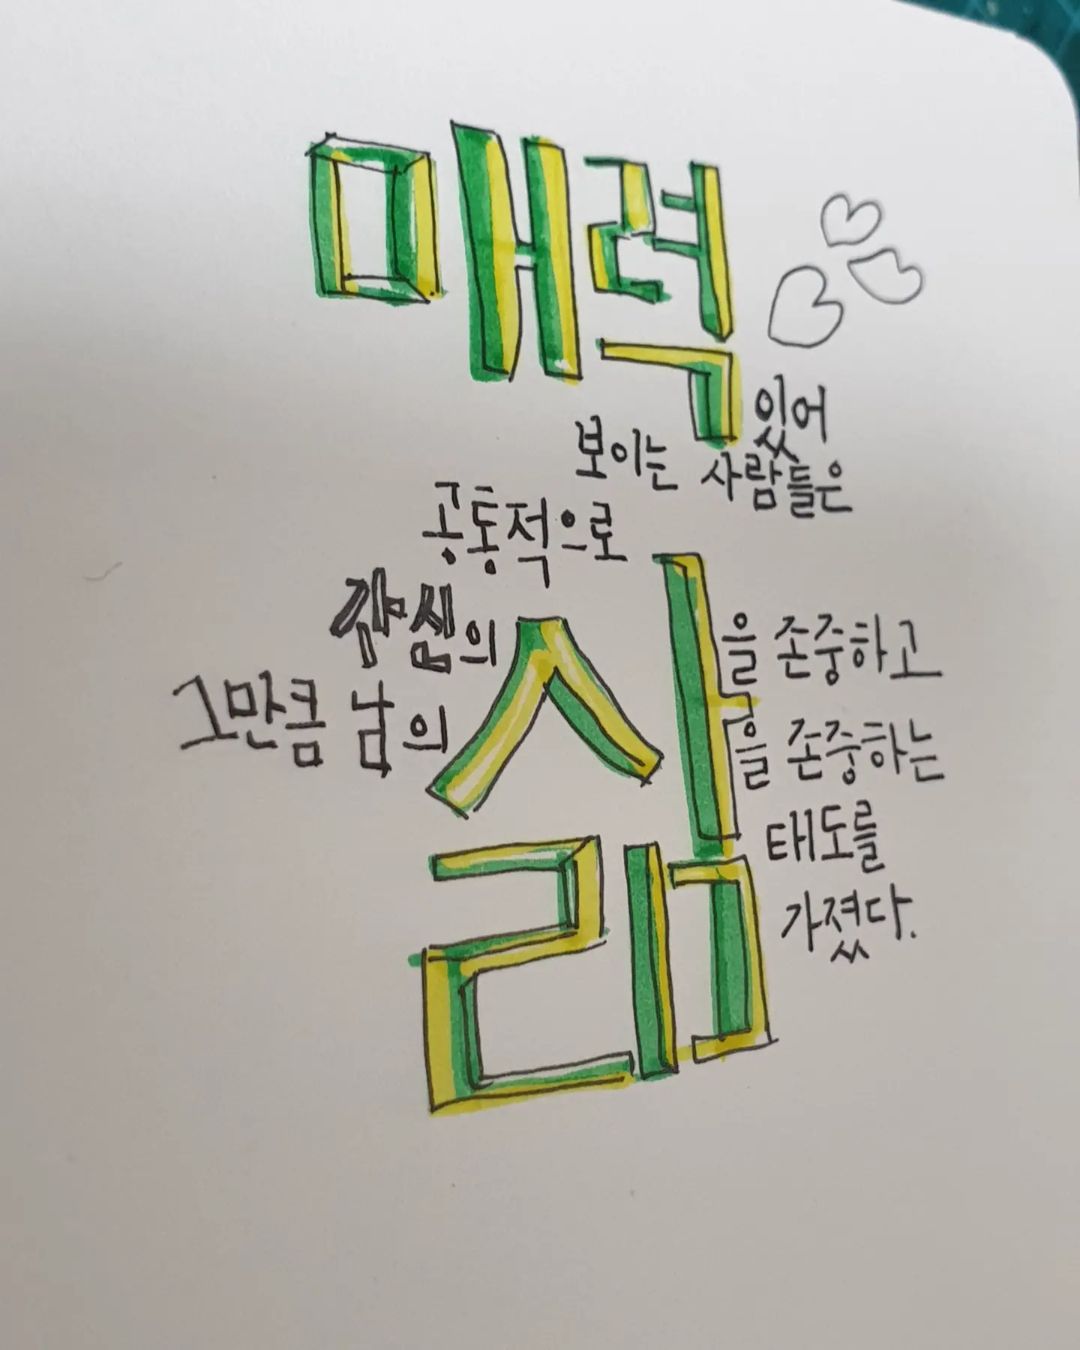 매력 있어
보이는 사람들은
공통적으로
삶을 존중하고
그만큼 남의 을 존중하는
태도를
가졌다.